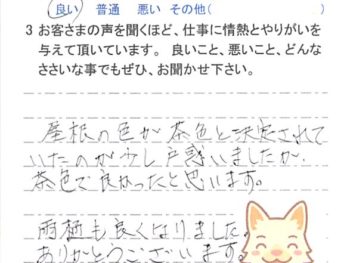 良い 普通 悪い その他(
3 お客さまの声を聞くほど、仕事に情熱とやりがいを
与えて頂いています。 良いこと、悪いこと、どんな
ささいな事でもぜひ、お聞かせ下さい。
屋根の色が茶色と決定されて
いたのが少し戸惑いましたが、
茶色で良かったと思います。
雨樋も良くなりました。
ありがとうございます。